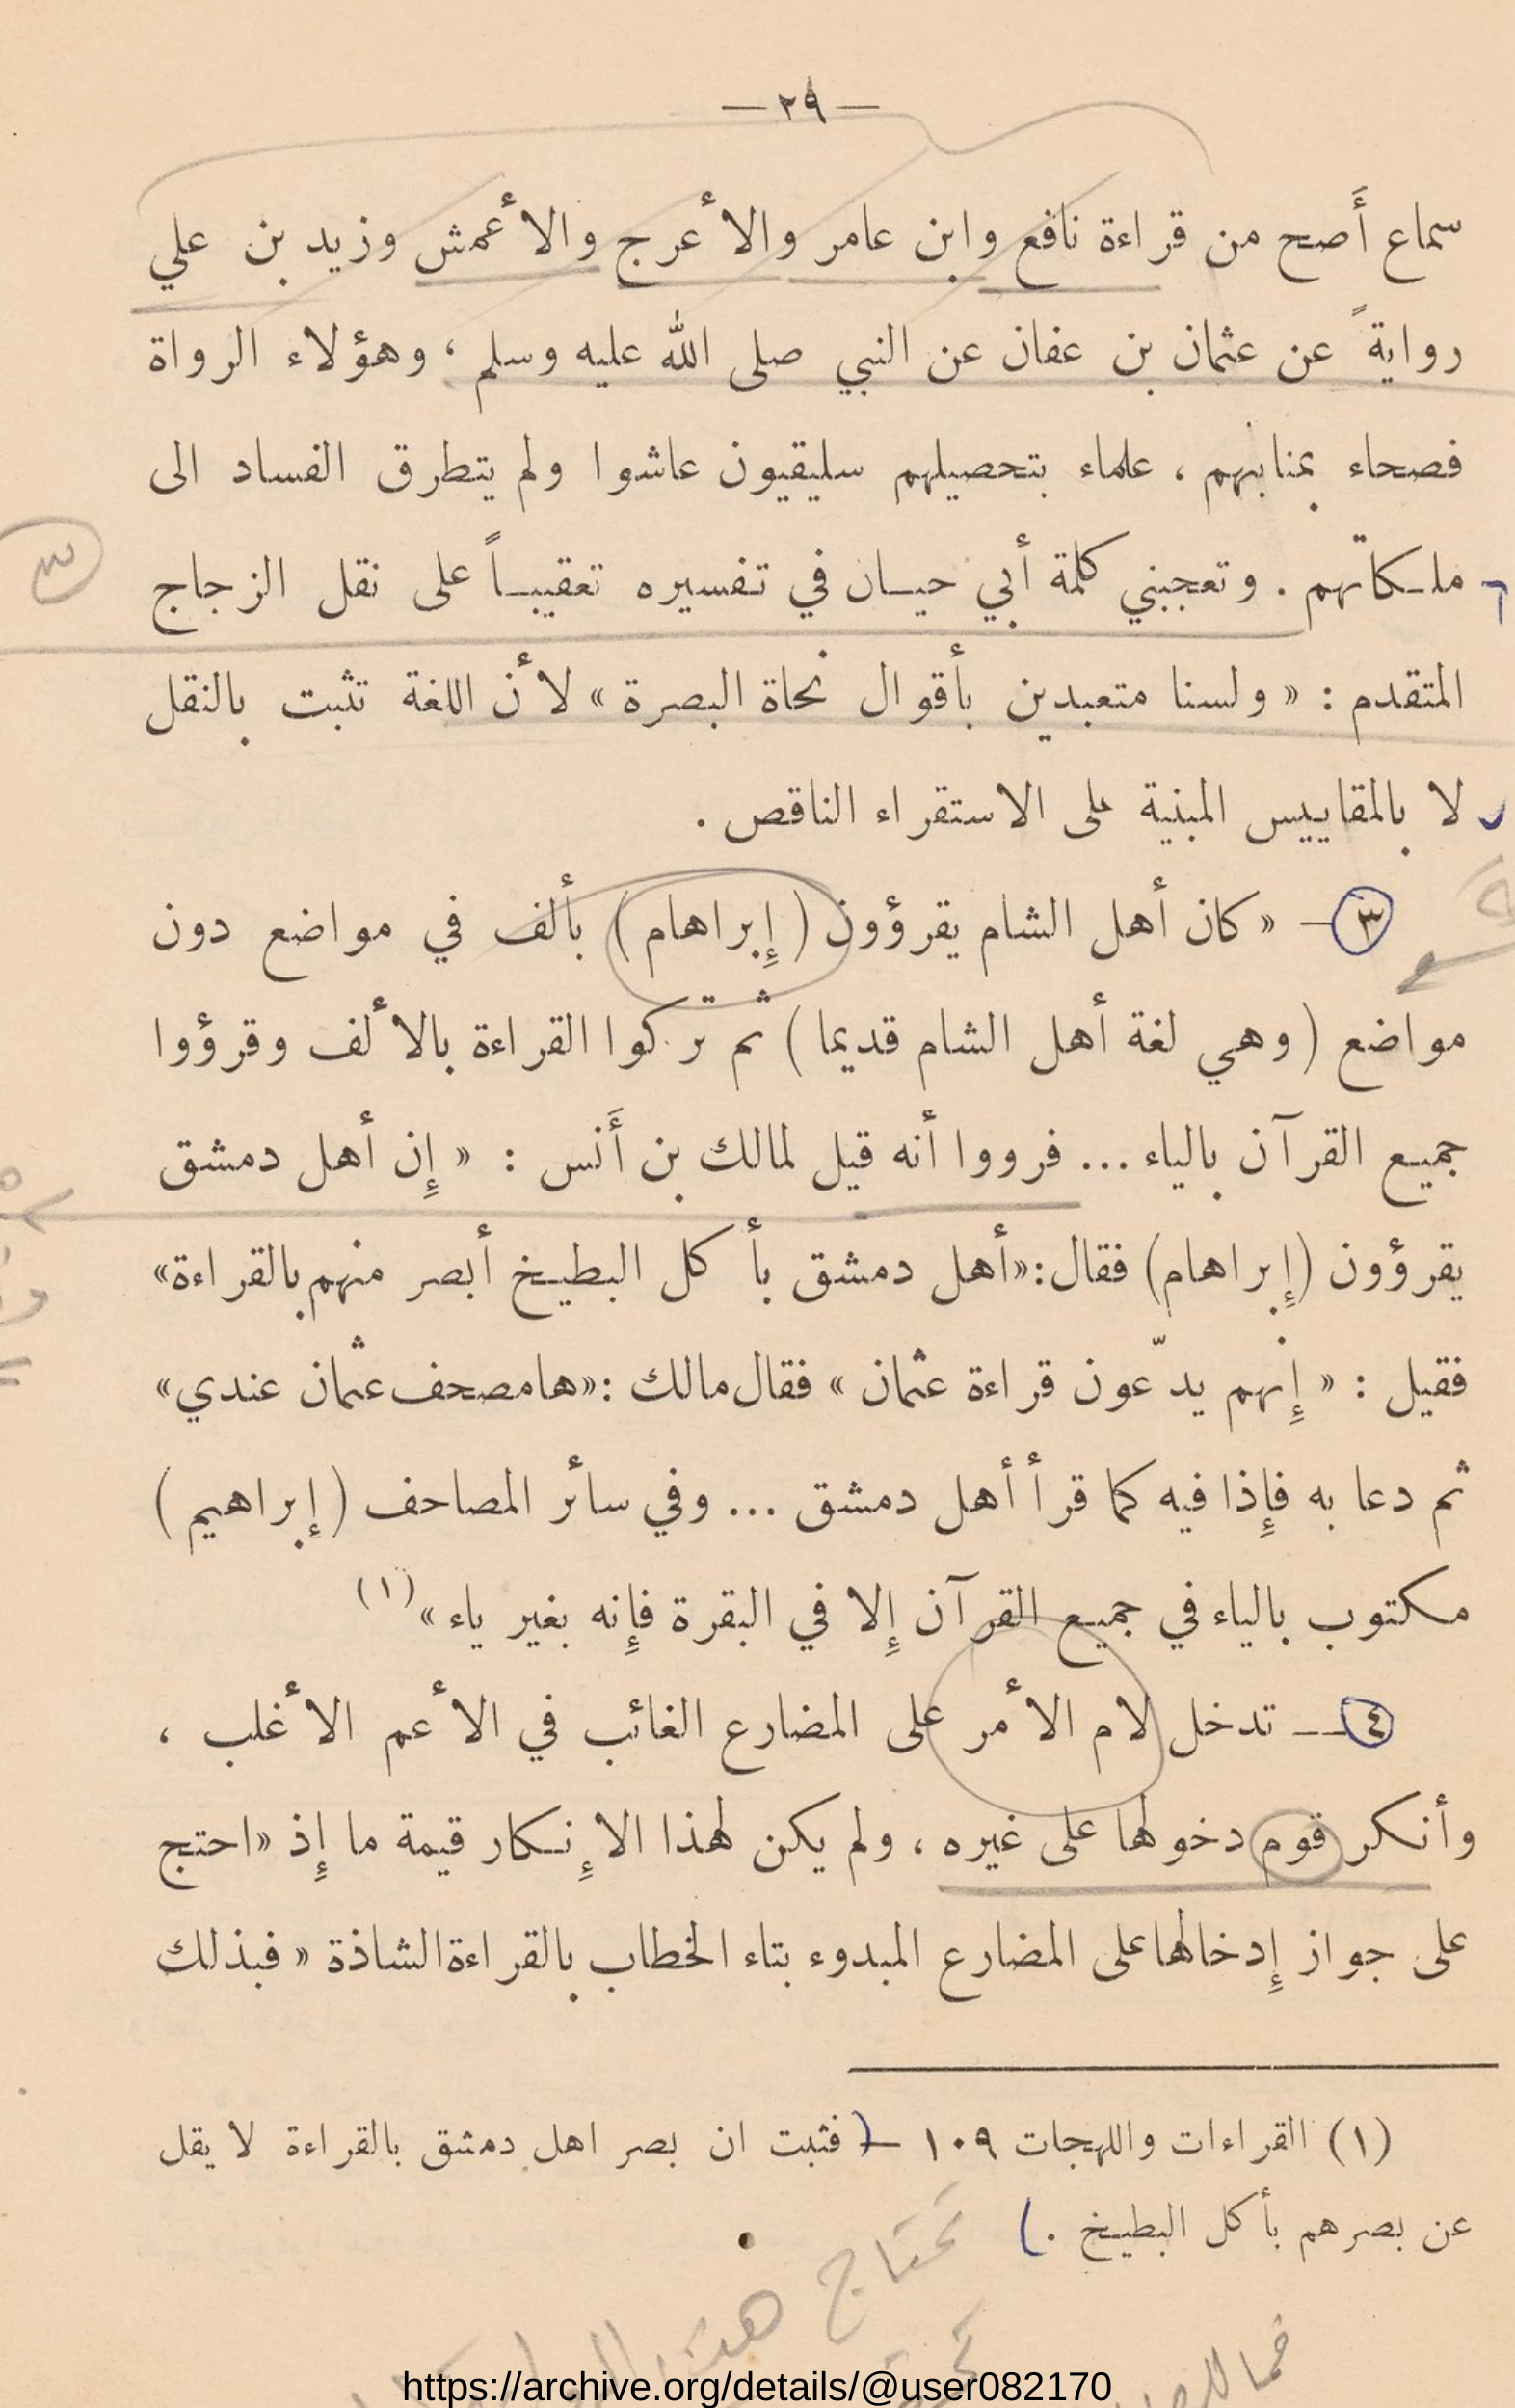 — ٢٩ —
سماع أَصح من قراءة نافع وابن عامر والأعرج والأعمش وزيد بن علي
روايةً عن عثمان بن عفان عن النبي صلى الله عليه وسلم ، وهؤلاء الرواة
فصحاء بمنابتهم ، علماء بتحصيلهم سليقيون عاشوا ولم يتطرق الفساد الى
ملكاتهم . وتعجبني كلمة أبي حيان في تفسيره تعقيباً على نقل الزجاج
المتقدم : « ولسنا متعبدين بأقوال نحاة البصرة » لأن اللغة تثبت بالنقل
لا بالمقاييس المبنية على الاستقراء الناقص .
٣ – « كان أهل الشام يقرؤون ( إِبراهام ) بألف في مواضع دون
مواضع ( وهي لغة أهل الشام قديما ) ثم تركوا القراءة بالألف وقرؤوا
جميع القرآن بالياء ... فرووا أنه قيل لمالك بن أَنس : « إِن أهل دمشق
يقرؤون (إِبراهام) فقال : «أهل دمشق بأكل البطيخ أبصر منهم بالقراءة»
فقيل : « إِنهم يدّعون قراءة عثمان » فقال مالك : «ها مصحف عثمان عندي»
ثم دعا به فإِذا فيه كما قرأ أهل دمشق ... وفي سائر المصاحف ( إبراهيم )
مكتوب بالياء في جميع القرآن إِلا في البقرة فإِنه بغير ياء » (١)
٤ — تدخل لام الأمر على المضارع الغائب في الأعم الأغلب ،
وأنكر قوم دخولها على غيره ، ولم يكن لهذا الإِنكار قيمة ما إِذ « احتج
على جواز إِدخالها على المضارع المبدوء بتاء الخطاب بالقراءة الشاذة « فبذلك
(١) القراءات واللهجات ١٠٩ – ( فثبت ان بصر اهل دمشق بالقراءة لا يقل
عن بصرهم بأكل البطيخ . )
تحتاج
https://archive.org/details/@user082170